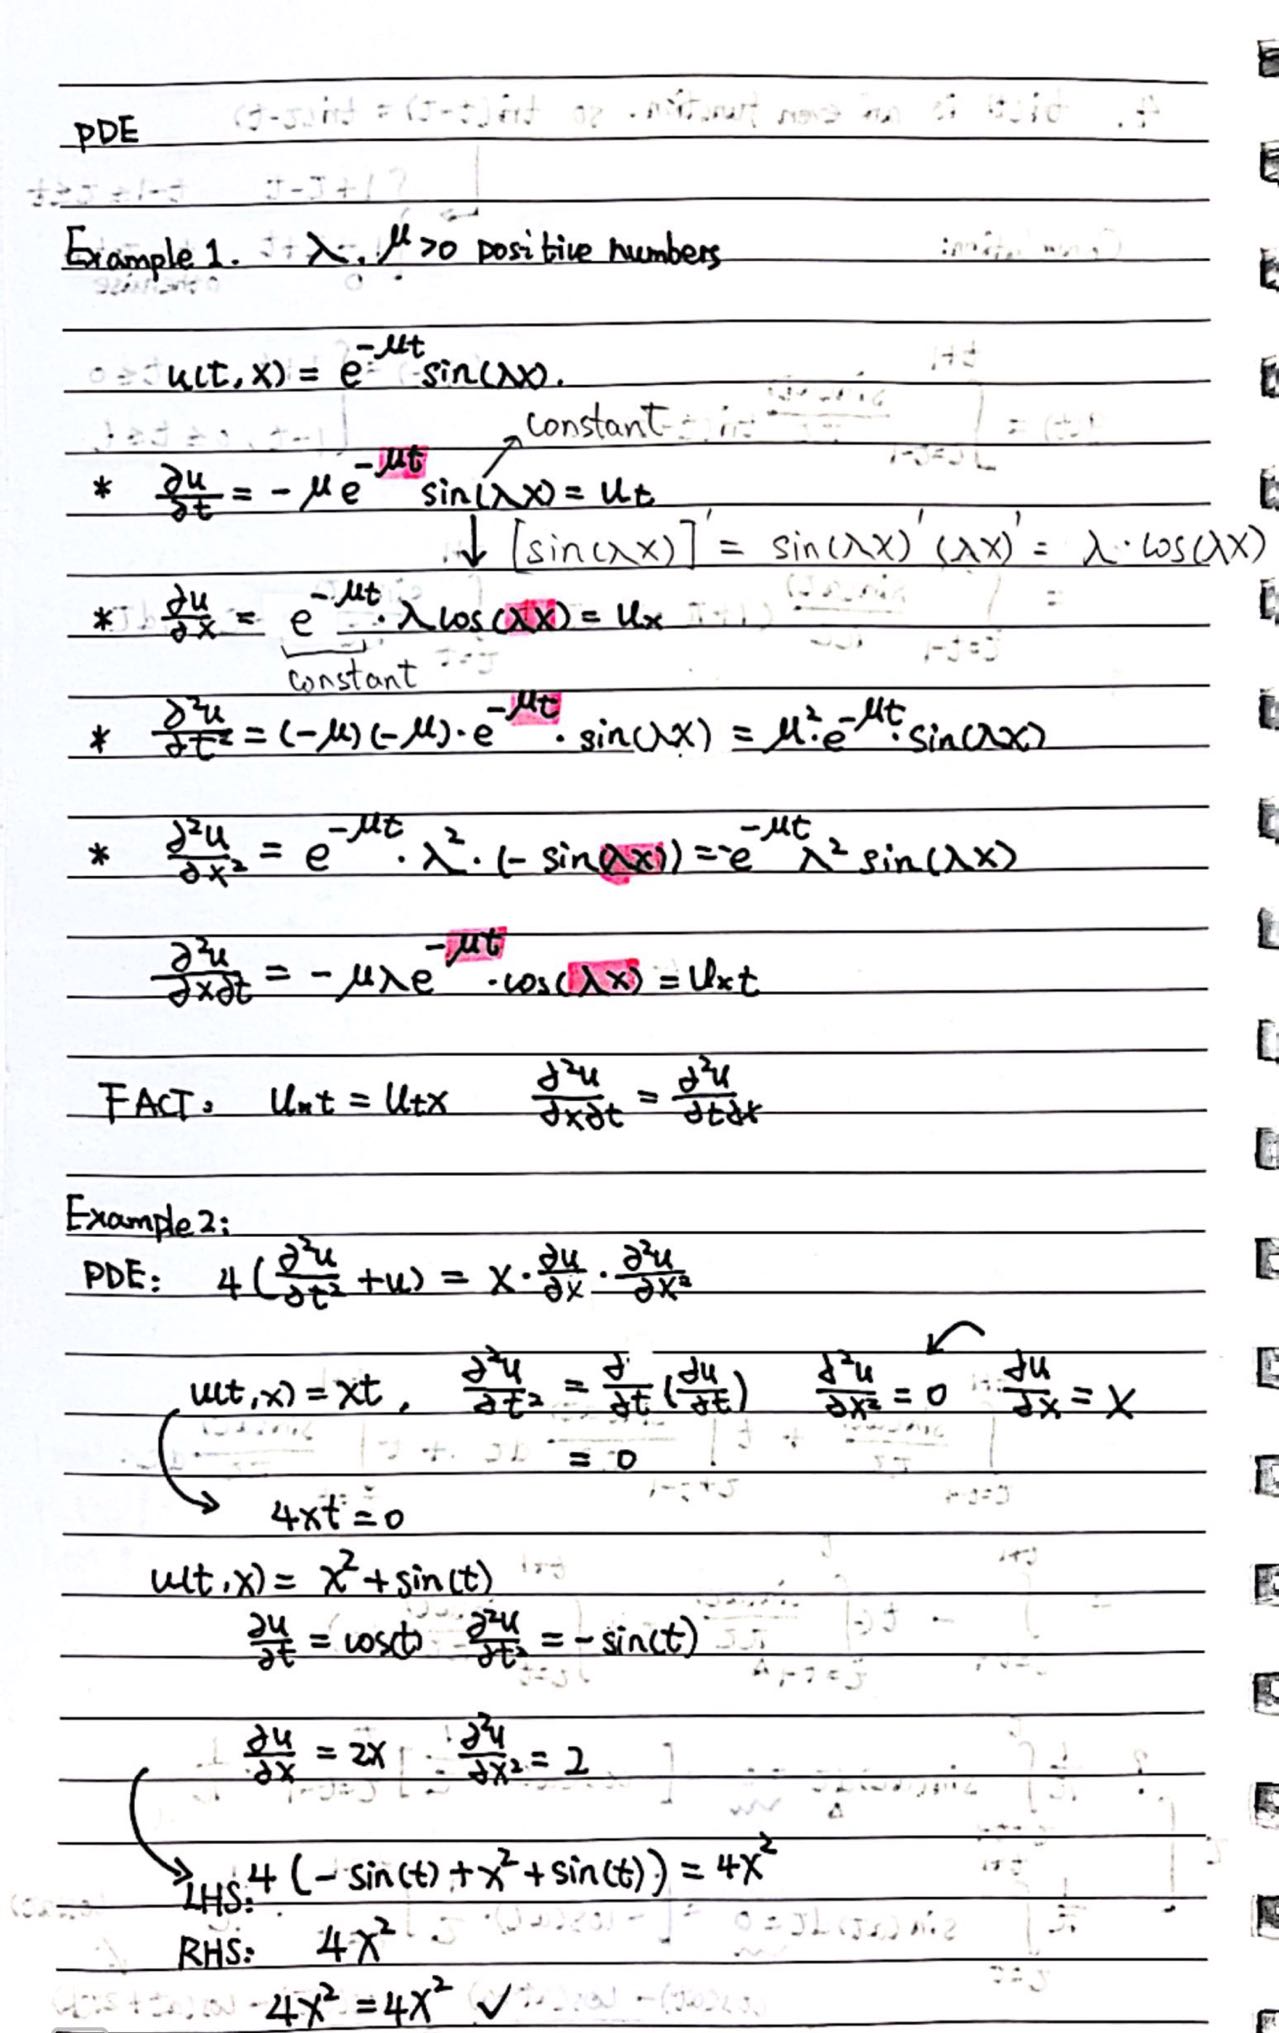 PDE
Example 1. λ, μ>0 positive numbers
u(t,x) = e^{-μt} sin(λx).
constant
* ∂u/∂t = -μe^{-μt} sin(λx) = ut
↓ [sin(λx)]' = sin(λx)' (λx)' = λ·cos(λx)
* ∂u/∂x = e^{-μt}·λcos(λx) = ux
constant
* ∂²u/∂t² = (-μ)(-μ)·e^{-μt}·sin(λx) = μ²·e^{-μt}·sin(λx)
* ∂²u/∂x² = e^{-μt}·λ²·(-sin(λx)) = -e^{-μt} λ² sin(λx)
∂²u/∂x∂t = -μλe^{-μt}·cos(λx) = uxt
FACT: uxt = utx ∂²u/∂x∂t = ∂²u/∂t∂x
Example 2:
PDE: 4(∂²u/∂t² + u) = x·∂u/∂x·∂²u/∂x²
u(t,x) = xt, ∂²u/∂t² = ∂/∂t(∂u/∂t) ∂²u/∂x² = 0 ∂u/∂x = x
= 0
4xt = 0
u(t,x) = x² + sin(t)
∂u/∂t = cos(t) ∂²u/∂t² = -sin(t)
∂u/∂x = 2x ∂²u/∂x² = 2
LHS: 4(-sin(t) + x² + sin(t)) = 4x²
RHS: 4x²
4x² = 4x² ✓